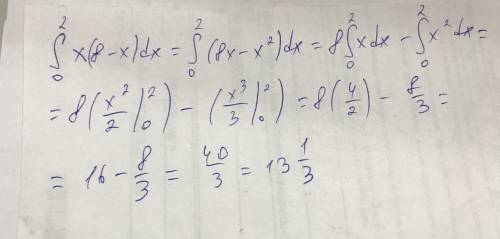 ∫₀² x(8-x)dx = ∫₀² (8x-x²)dx = 8∫₀² xdx - ∫₀² x²dx =
= 8(x²/2 |₀²) - (x³/3 |₀²) = 8(4/2) - 8/3 =
= 16 - 8/3 = 40/3 = 13 1/3